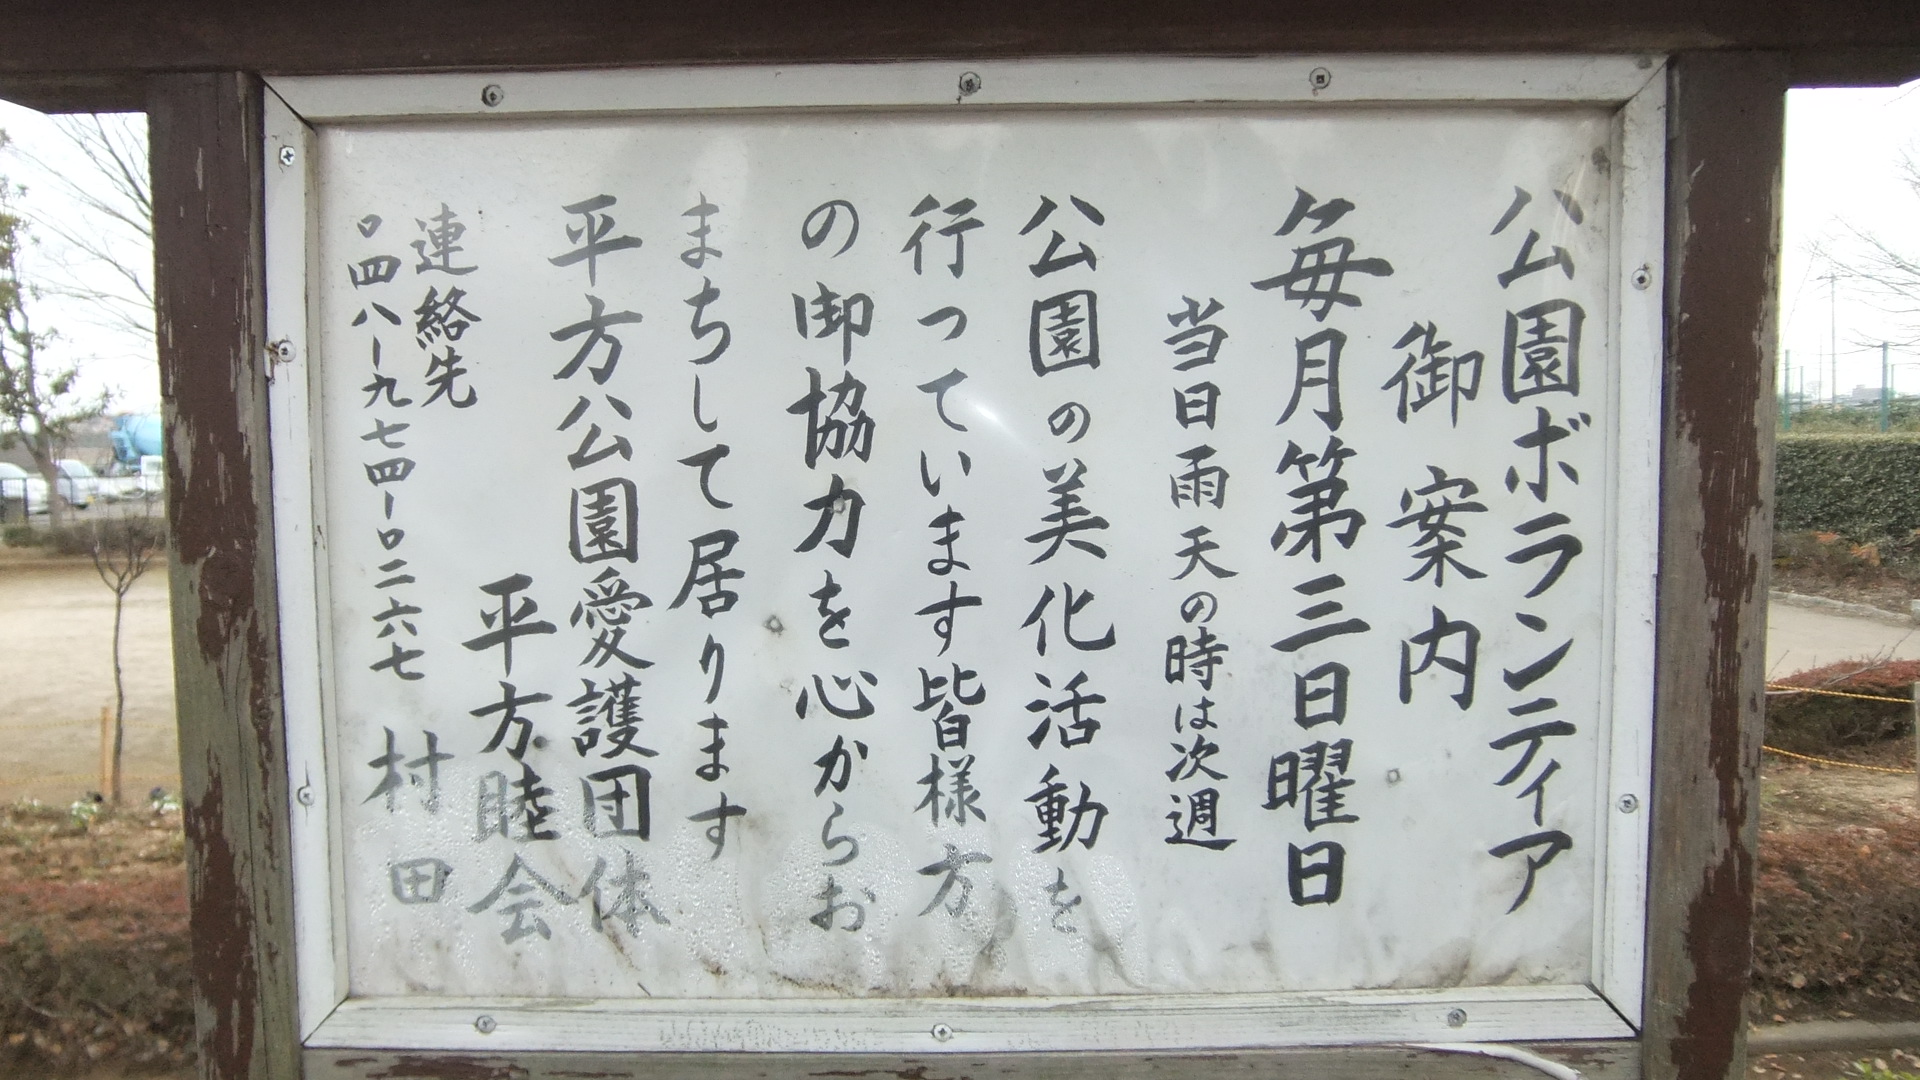 公園ボランティア
御案内
毎月第三日曜日
当日雨天の時は次週
公園の美化活動を
行っています皆様方
の御協力を心からお
まちして居ります
平方公園愛護団体
平方睦会
連絡先
〇四八ー九七四ー〇二六七
村田